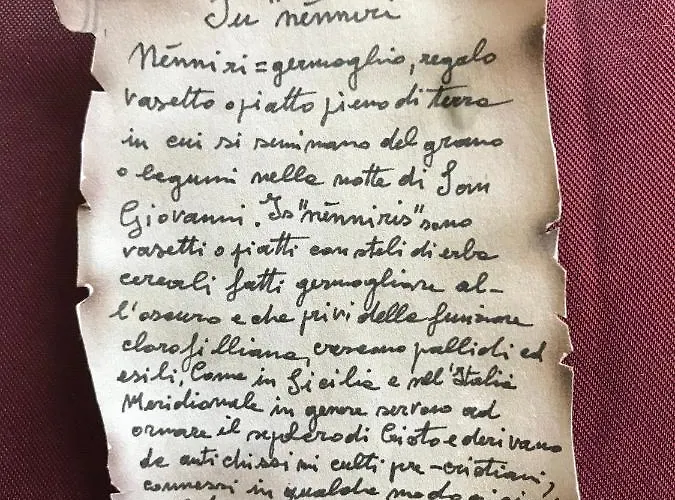 Su "nénniri
Nénniri = germoglio, regalo
vasetto o piatto pieno di terra
in cui si seminano del grano
o legumi nella notte di San
Giovanni. Is "nénniris" sono
vasetti o piatti con steli di erba
cereali fatti germogliare al-
l'oscuro e che privi della funzione
clorofilliana, crescono pallidi ed
esili, Come in Sicilia e nell'Italia
Meridionale in genere servono ad
ornare il sepolcro di Cristo e derivano
da antichissimi culti pre-cristiani,
connessi in qualche modo ai